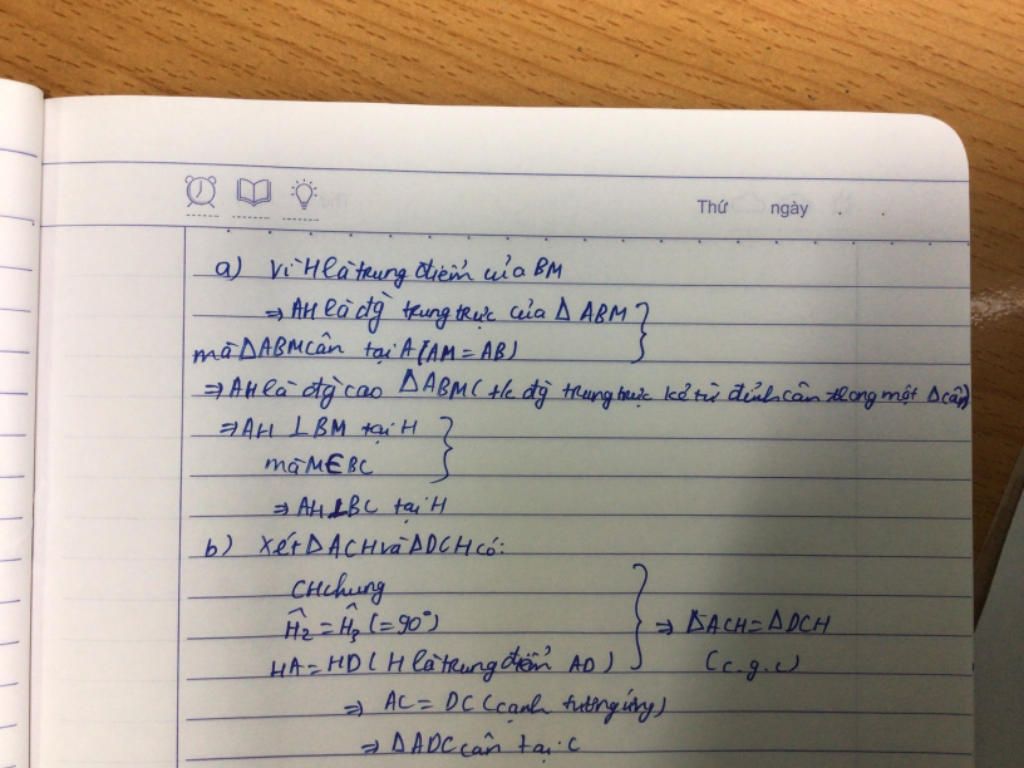 Thứ ngày
a) Vì H là trung điểm của BM
⇒ AH là đg̀ trung trực của Δ ABM
mà ΔABM cân tại A (AM = AB)
⇒ AH là đg̀ cao ΔABM ( t/c đg̀ trung trực kẻ từ đỉnh cân trong một Δ cân)
⇒ AH ⊥ BM tại H
mà M ∈ BC
⇒ AH ⊥ BC tại H
b) Xét ΔACH và ΔDCH có:
CH chung
Ĥ2 = Ĥ3 (= 90°)
HA = HD ( H là trung điểm AD ) ⇒ ΔACH = ΔDCH
(c.g.c)
⇒ AC = DC (cạnh tương ứng)
⇒ ΔADC cân tại C